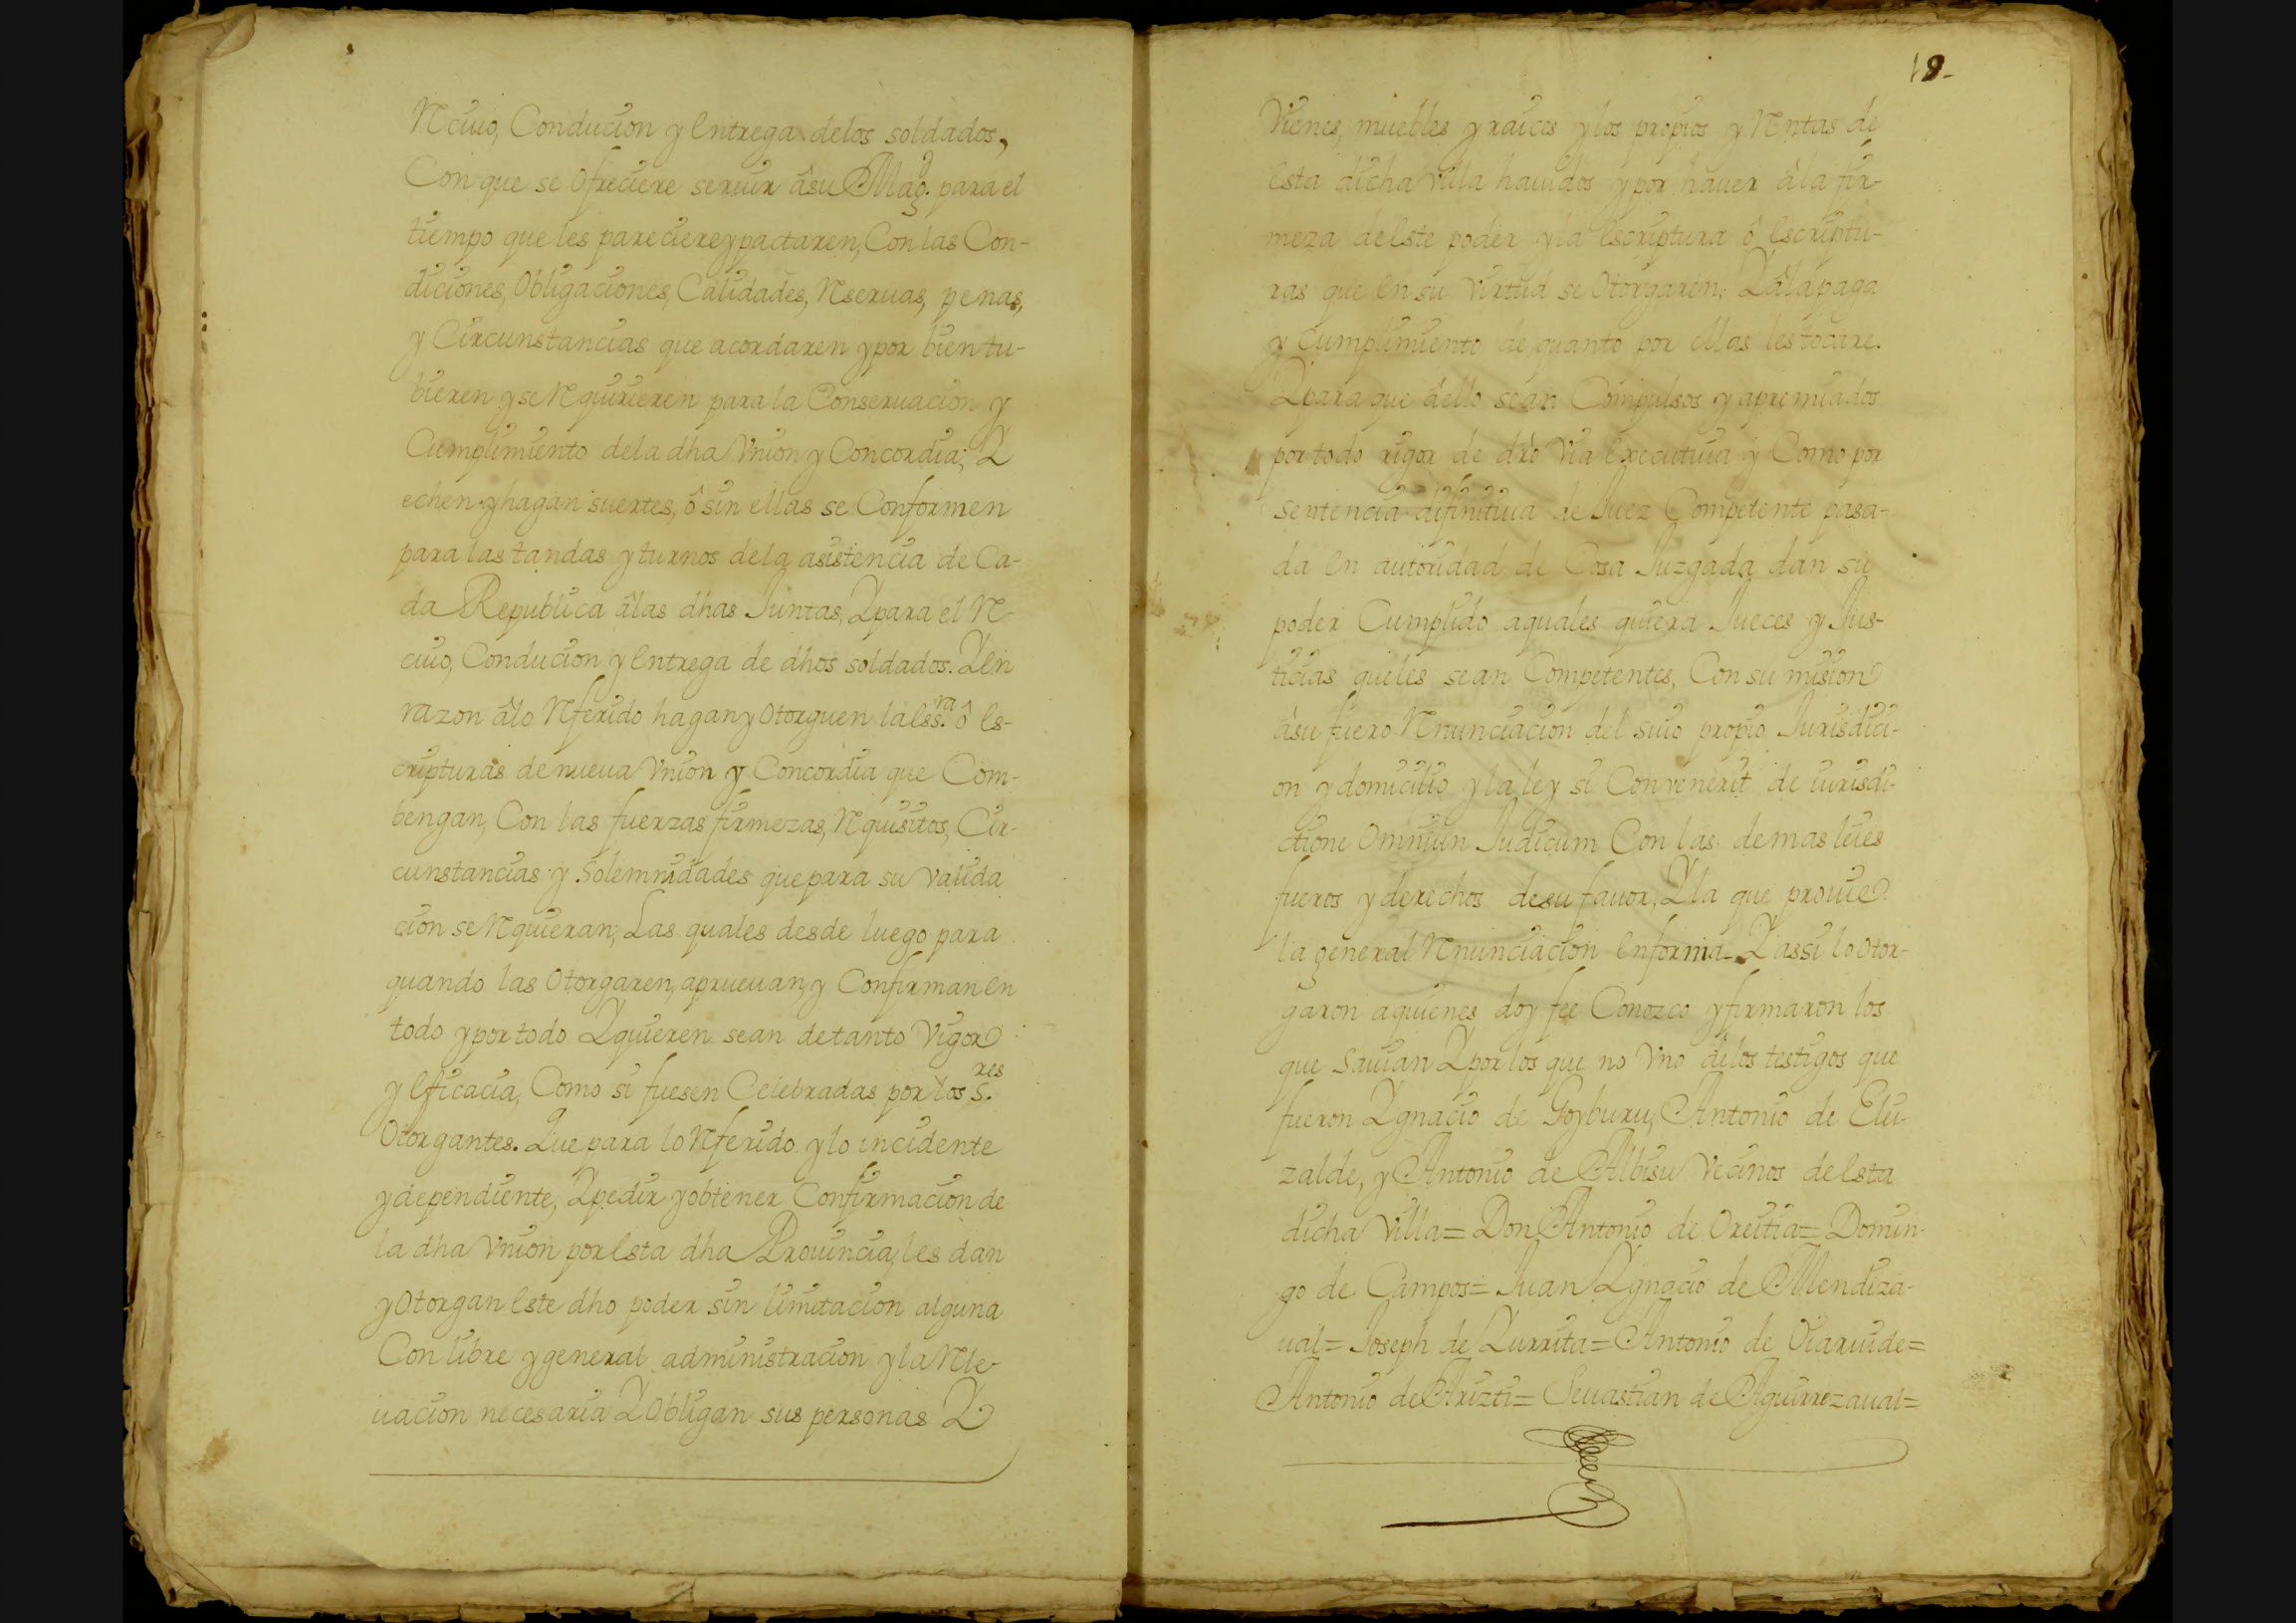 Recivo, Conducion y Entrega delos soldados,
Con que se Ofreciere seruir âsu Magd. para el
tiempo que les pareciere y pactaren, Con las Con-
diciones, Obligaciones, Calidades, Reseruas, penas,
y Circunstancias que acordaren y por bien tu-
bieren y se Requirieren para la Conseruacion y
Cumplimiento dela dha Vnion y Concordia; Y
echen y hagan suertes, ô sin ellas se Conformen
para las tandas y turnos dela asistencia de Ca-
da Republica âlas dhas Juntas, Y para el Re-
ciuo, Conducion y Entrega de dhos soldados. Y En
razon âlo Referido hagan y Otorguen la Essra. ô Es-
cripturas de nueua Vnion y Concordia que Com-
bengan, Con las fuerzas firmezas, Requisitos, Cir-
cunstancias y Solemnidades que para su valida
cion se Requieran; Las quales desde luego para
quando las Otorgaren, aprueuan, y Confirman En
todo y por todo Y quieren sean de tanto Vigor
y Eficacia, Como si fuesen Celebradas por los Sres.
Otorgantes. Que para lo Referido y lo incidente
y dependiente, Y pedir y obtener Confirmacion de
la dha Vnion por Esta dha Prouincia, les dan
y Otorgan Este dho poder sin limitacion alguna
Con libre y general administracion y la Rele-
uacion necesaria Y Obligan sus personas Y
19-
Vienes, muebles y raices y los propios y Rentas de
Esta dicha Villa hauidos y por hauer â la fir-
meza de Este poder y la Escriptura ô Escriptu-
ras que En su virtud se Otorgaren; Y âla paga
y Cumplimiento de quanto por ellas les tocare.
Y para que âello sean Compulsos y apremiados
por todo rigor de dro Via Executiua y Como por
sentencia difinitiua de Juez Competente pasa-
da En autoridad de Cosa Juzgada dan su
poder Cumplido a quales quiera Jueces y Jus-
ticias que les sean Competentes, Con su mision
âsu fuero Renunciacion del suio propio Jurisdici-
on y domicilio y la ley si Convenerit de iurisdi-
ctione Omniun Judicum Con las demas leies
fueros y derechos de su fauor, Y la que proiue
la general Renunciacion En forma. Y assi lo Otor-
garon a quienes doy fee Conozco y firmaron los
que Sauian Y por los que no Vno delos testigos que
fueron Ygnacio de Goyburu, Antonio de Eli-
zalde, y Antonio de Albisu Vecinos de Esta
dicha Villa= Don Antonio de Oreitia= Domin-
go de Campos= Juan Ygnacio de Mendiza-
ual= Joseph de Yurrita= Antonio de Oiaruide=
Antonio de Arizti= Seuastian de Aguirrezaual=